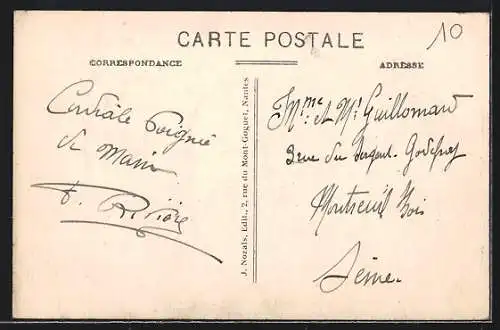 10
CARTE POSTALE
CORRESPONDANCE
ADRESSE
Cordiale Poignée
de Main
J. Nozais, Edit., 2, rue du Mont-Goguet, Nantes
Mme et Mr Guillomard
3 rue du Sergent. Godefroy
Montreuil Bois
Seine.